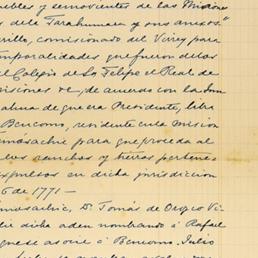 uebles y semovientes de las Misiones
s de la Tarahumara y sus anexos."
rillo, comisionado del Virrey para
mporalidades que fueron de los
el Colegio de Sn Felipe el Real de
misiones de, de acuerdo con la Jun
alma de que era Presidente, libra
Bencomo, residente en la misión
mósachic para que proceda al
los ranchos y tierras pertene
expulsos en dicha jurisdicción
6 de 1771 —
mósachic, Dn Tomás de Orozco Vi
dicha orden nombrando a Rafael
que se asocie a Bencomo. Julio